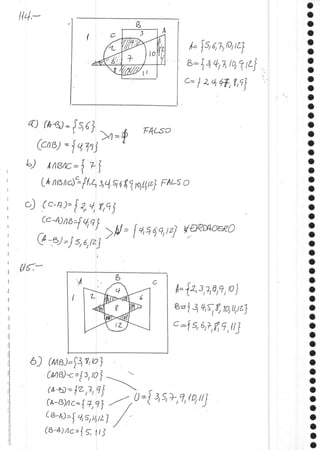 114.-
B
A
C
1
3
2
4
9
10
12
5
6
7
8
11
A= {5,6,7,10,12}
B= {3,4,7,10,9,12}
C= {2,4,6,7,8,9}
a) (A-B) = {5,6}
>∩=ϕ FALSO
(C∩B) = {4,7,9}
b) A∩B∩C = {7}
(A∩B∩C)ᶜ={1,2,3,4,5,6,8,9,10,11,12} FALSO
c) (C-A)= {2,4,8,9}
(C-A)∩B={4,9}
>U= {4,5,6,9,12} VERDADERO
(A-B)= {5,6,12}
115.-
A
B
C
4
2
8
6
12
A= {2,3,7,8,9,10}
B= {3,4,5,8,10,11,12}
C= {5,6,7,8,9,11}
b) (A∩B)={3,8,10}
(A∩B)-C={3,10}
(A-B)={2,7,9}
(A-B)∩C={7,9}
U={3,5,7,9,10,11}
(B-A)={4,5,11,12}
(B-A)∩C={5,11}